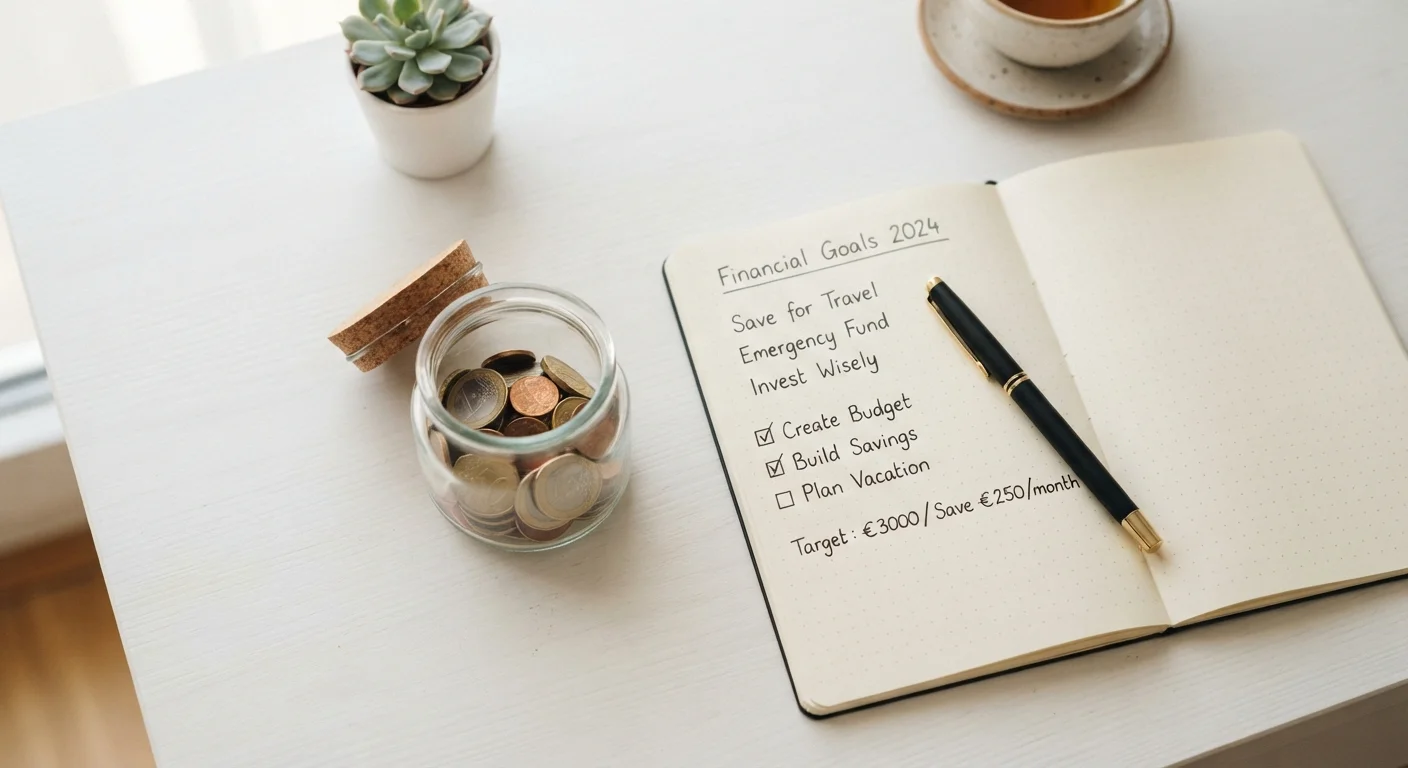 Financial Goals 2024
Save for Travel
Emergency Fund
Invest Wisely
☑ Create Budget
☑ Build Savings
☐ Plan Vacation
Target: €3000/Save €250/month